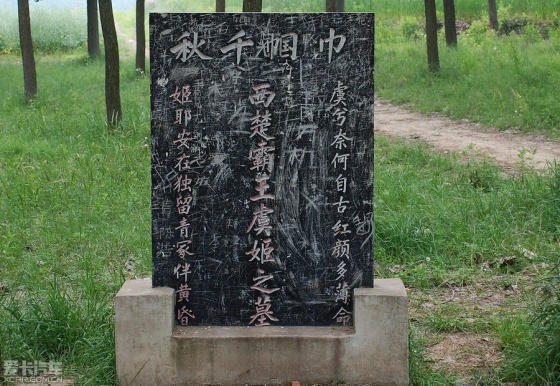 巾国千秋
虞兮奈何自古红颜多薄命
西楚霸王虞姬之墓
姬耶安在独留青冢伴黄昏
爱卡汽车
XCAR.COM.CN